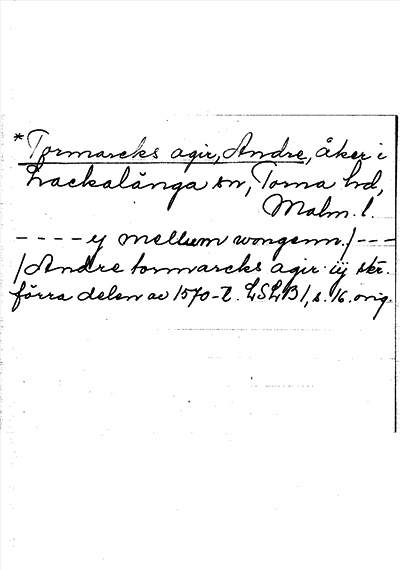 *Tormarcks agir, Andre, åker i
Lackalänga sn, Torna hd,
Malm. l.
---- y mellum wongenn / ---
/ Andre tormarcks agir iij skr.
förra delen av 1570-t. LSLB 1, s. 16. orig.